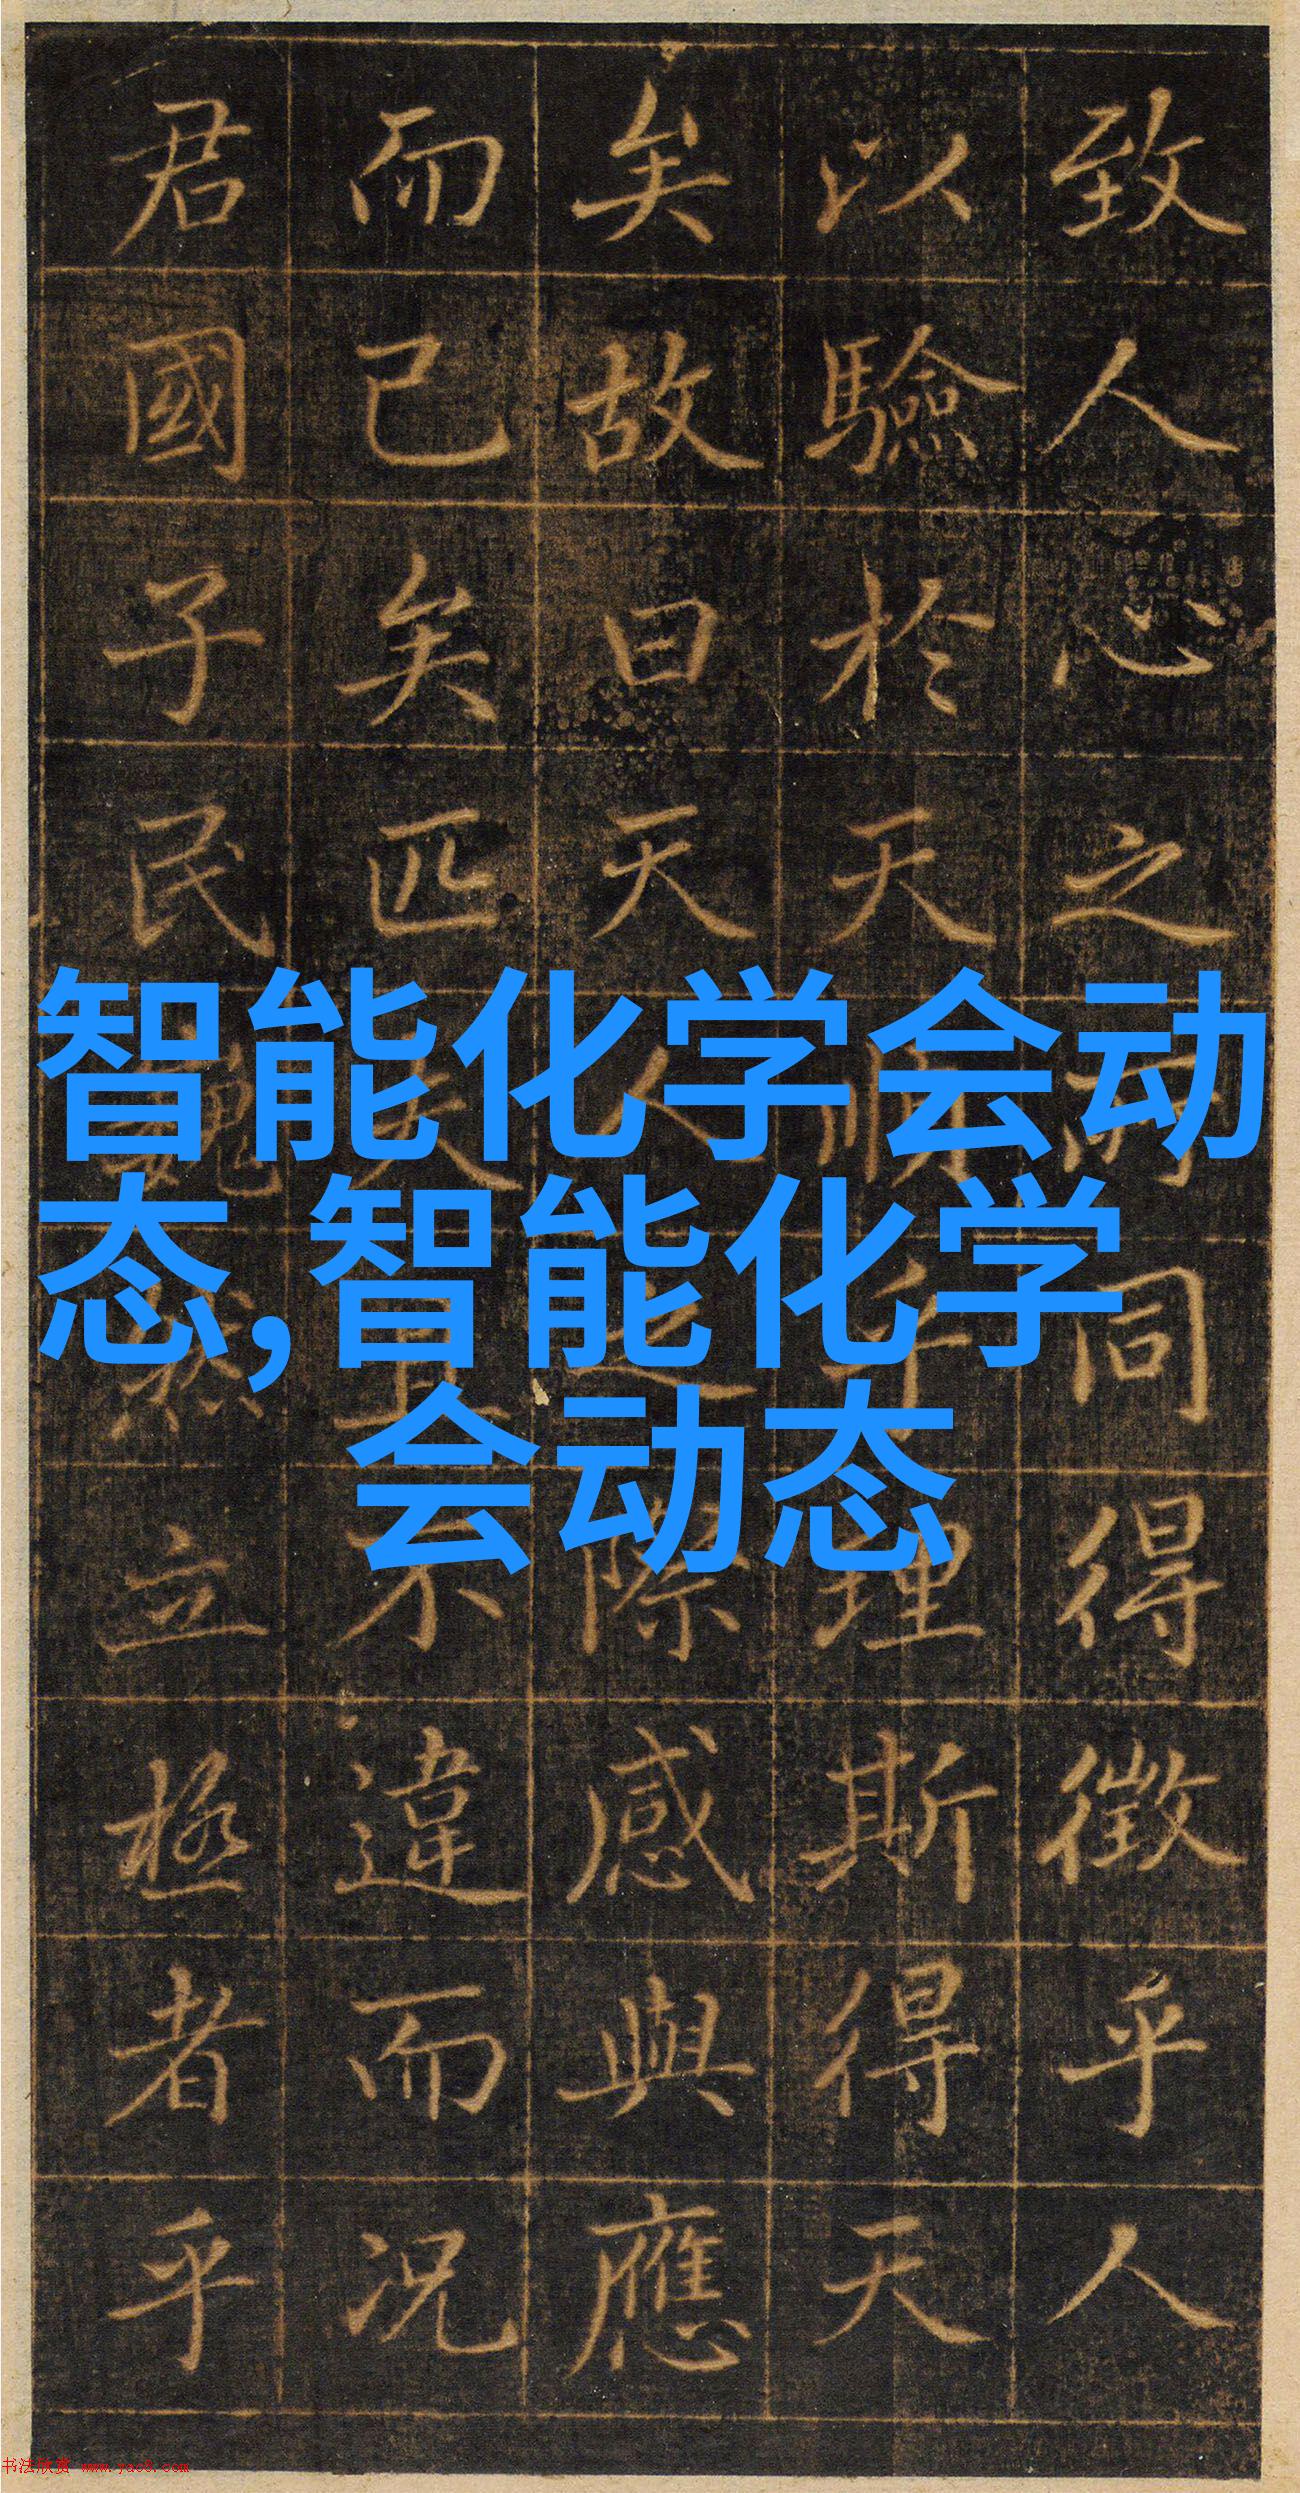 致人心之同得徵乎人
以驗於天順理斯得天
矣故曰天人之際感與應
而已矣匹夫且不違而况
君國子民巍然立極者乎
智能化学会动
态,智能化学
会动态
书法欣赏 www.yac8.com